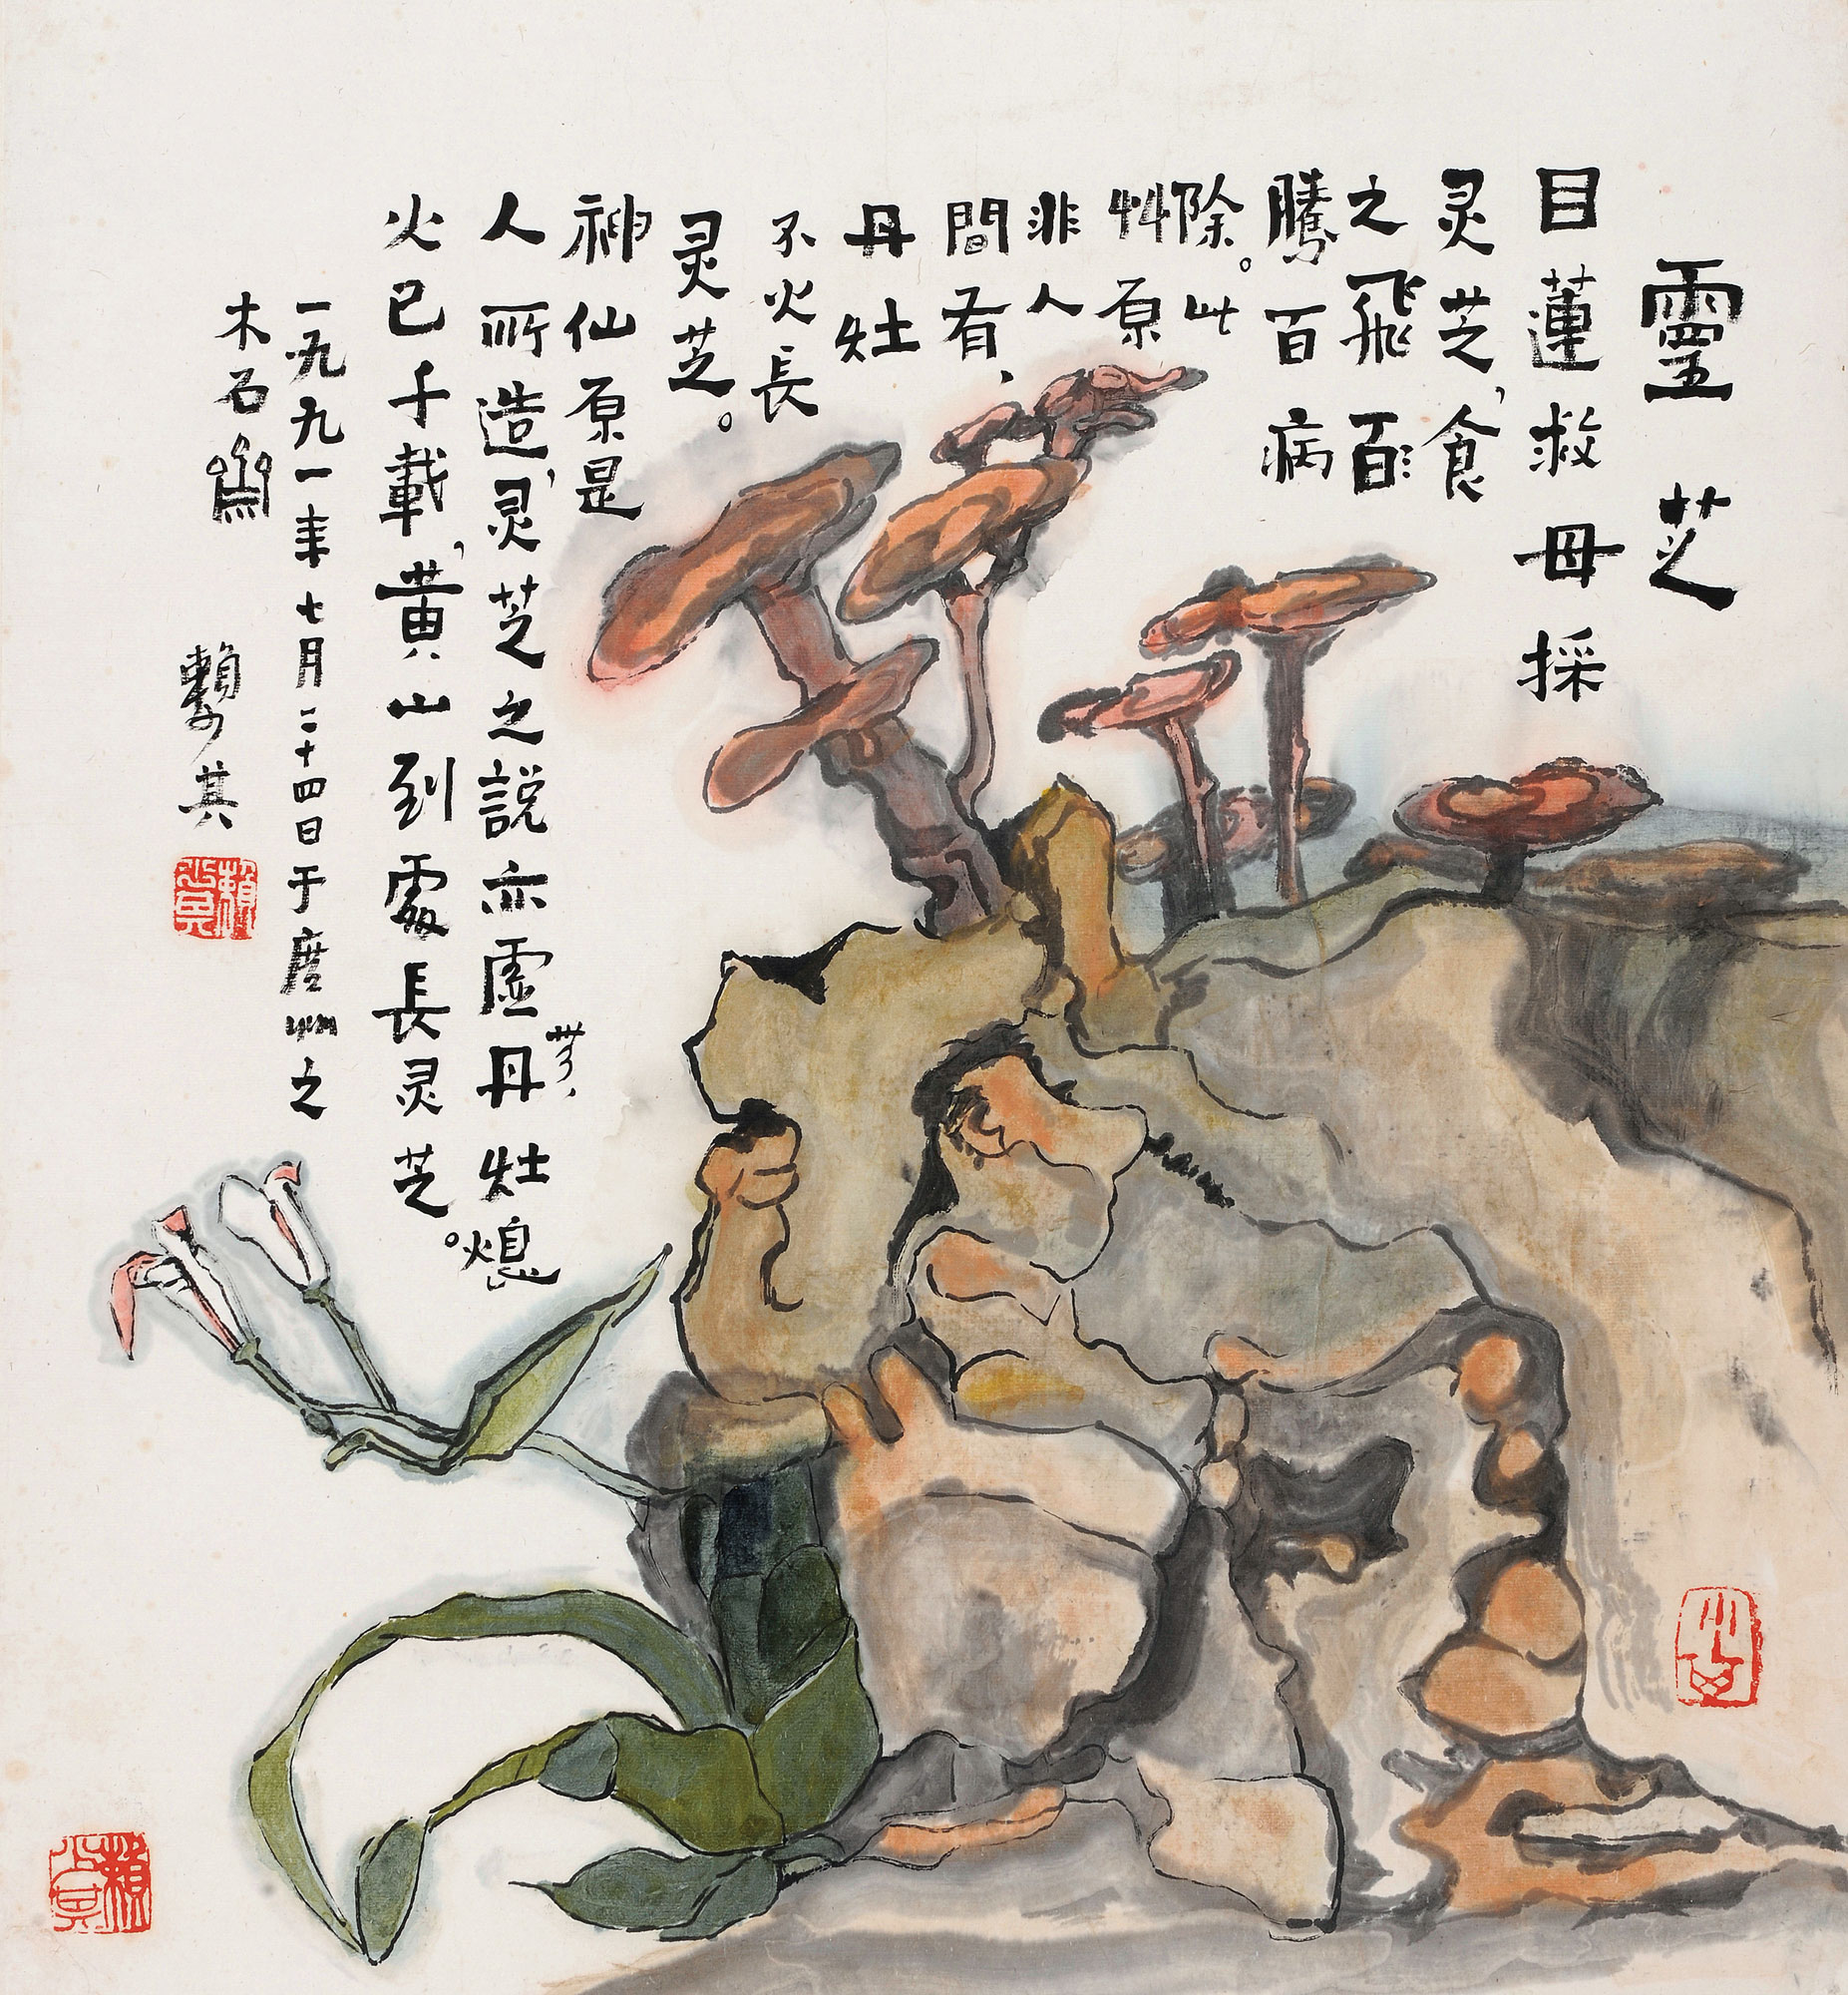 靈芝
目蓮救母採
灵芝，食
之飛
騰百病
除。此
艸原
非人
間有，
丹灶
不火長
灵芝。
神仙原是
人所造，灵芝之說亦虛無，丹灶熄
火已千載，黄山到處長灵芝。
一九九一年七月二十四日于廣州之
木石齋
賴少其